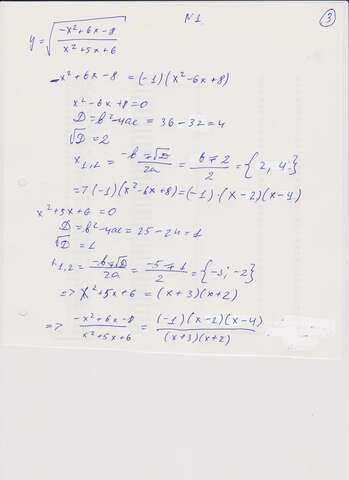 N1
3
y = √((-x²+6x-8)/(x²+5x+6))
-x²+6x-8 = (-1)(x²-6x+8)
x²-6x+8=0
D=b²-4ac = 36-32=4
√D=2
x₁,₂ = (-b∓√D)/2a = (6∓2)/2 = {2, 4}
=> (-1)(x²-6x+8)=(-1)·(x-2)(x-4)
x²+5x+6=0
D=b²-4ac=25-24=1
√D=1
x₁,₂=(-b∓√D)/2a = (-5∓1)/2 = {-3; -2}
=> x²+5x+6 = (x+3)(x+2)
=> (-x²+6x-8)/(x²+5x+6) = ((-1)(x-2)(x-4))/((x+3)(x+2))